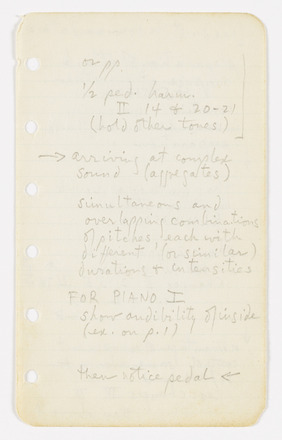 or pp.
1/2 ped. harm.
II 14 & 20-21
(hold other tones)
→ arriving at complex
sound (aggregates)
simultaneous and
overlapping combinations
of pitches each with
different (or similar)
durations & intensities
FOR PIANO I
show audibility of inside
(ex. on p. 1)
then notice pedal ←